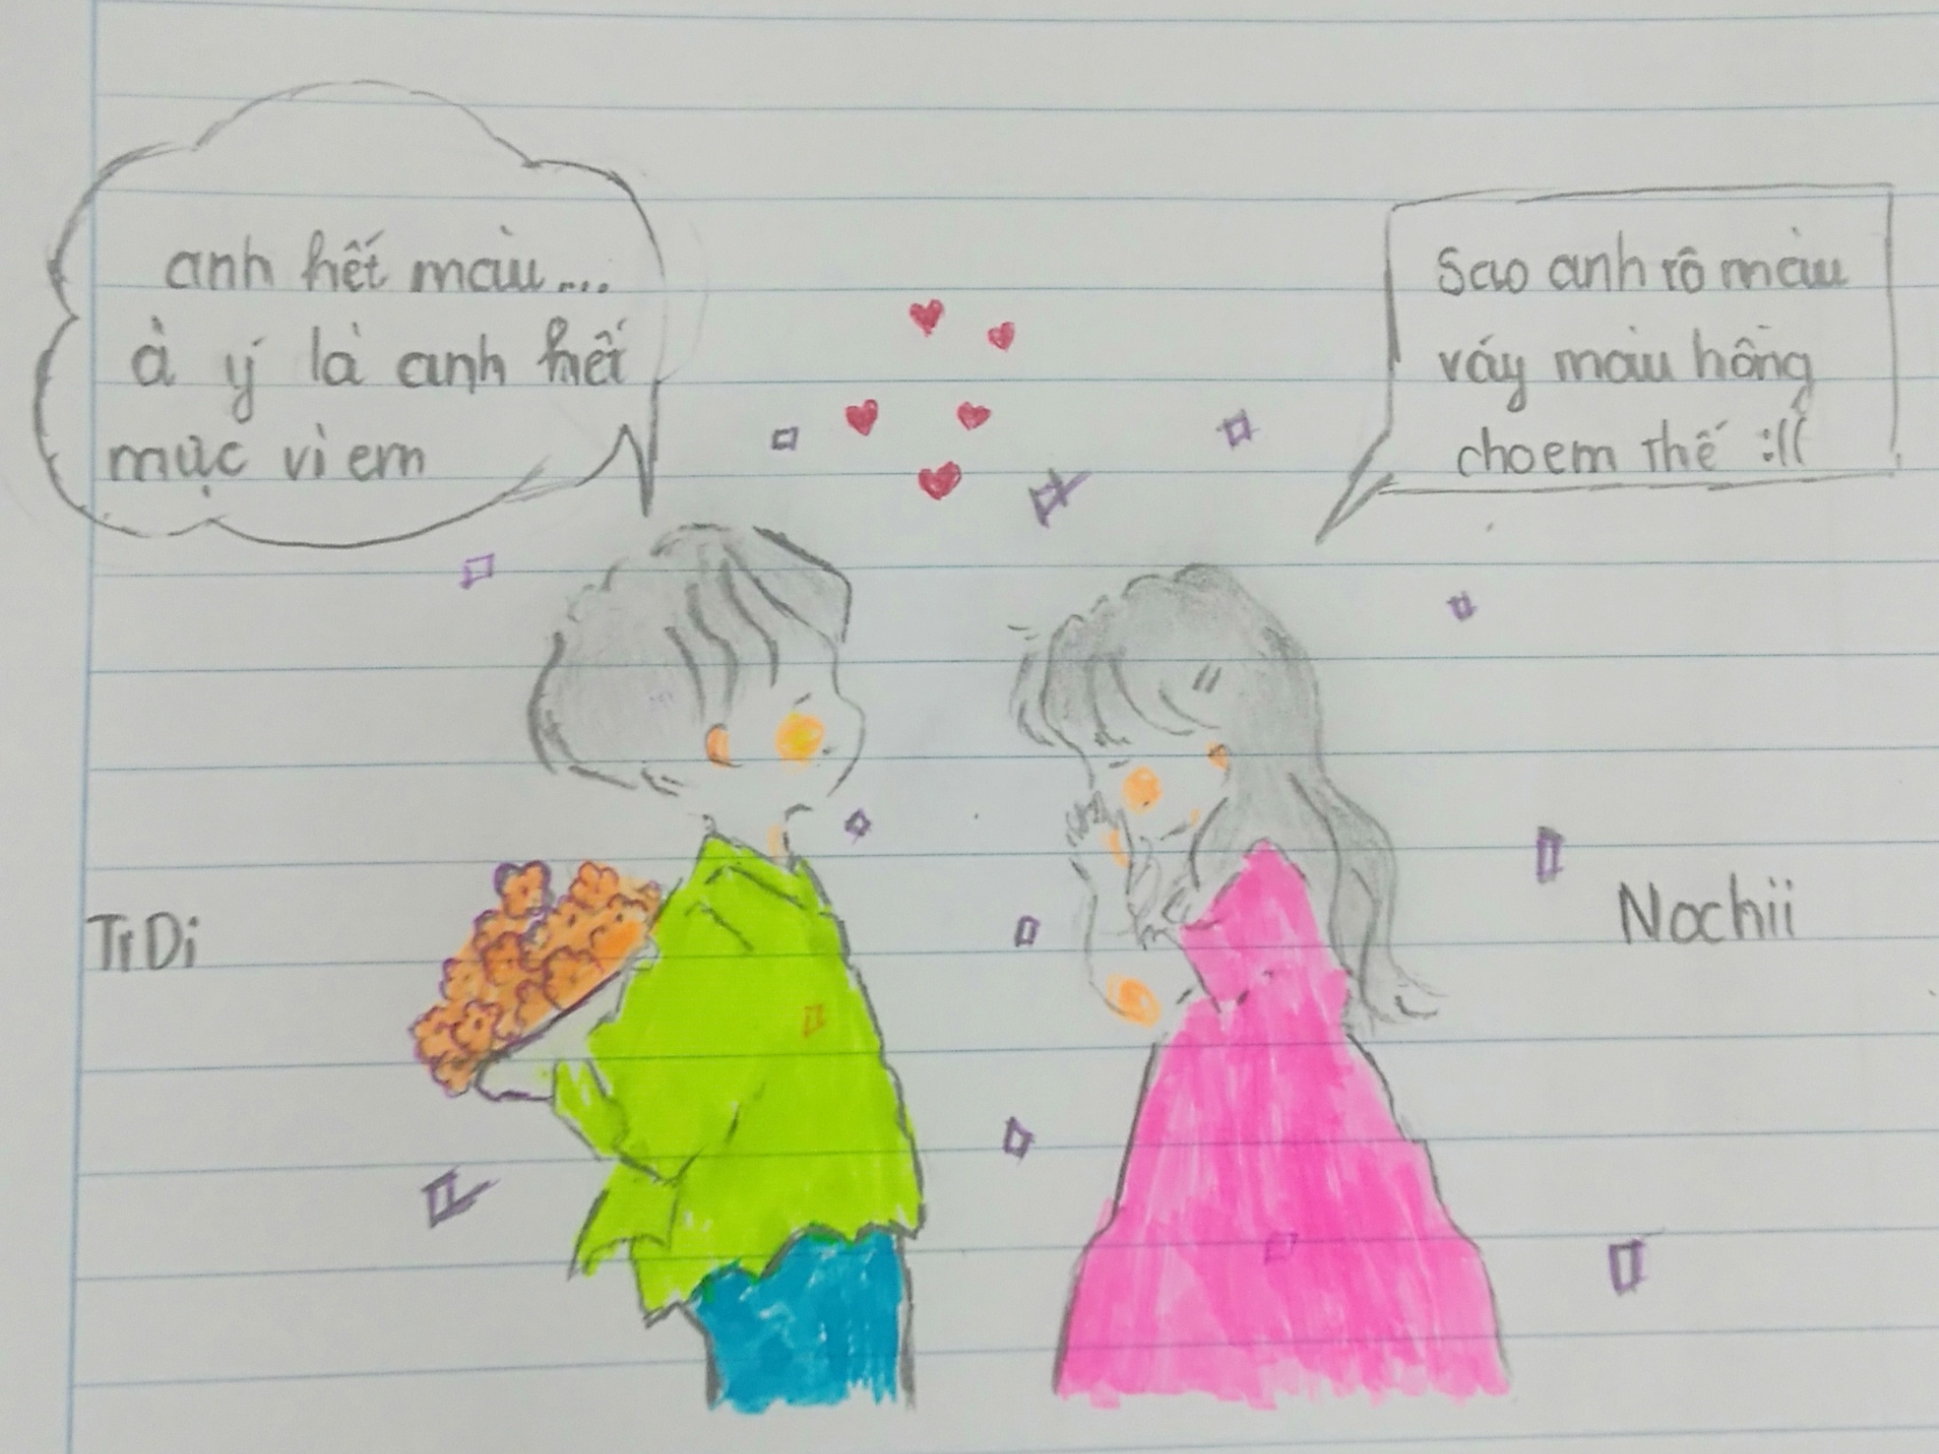 anh hết màu...
à ý là anh hết
mực vì em
Sao anh tô màu
váy màu hồng
cho em thế :((
TiDi
Nochii